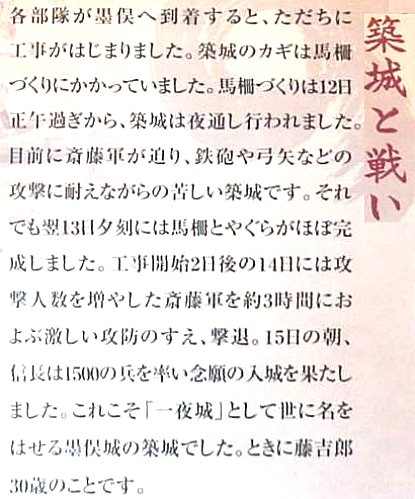 築城と戦い
各部隊が墨俣へ到着すると、ただちに
工事がはじまりました。築城のカギは馬柵
づくりにかかっていました。馬柵づくりは12日
正午過ぎから、築城は夜通し行われました。
目前に斎藤軍が迫り、鉄砲や弓矢などの
攻撃に耐えながらの苦しい築城です。それ
でも翌13日夕刻には馬柵とやぐらがほぼ完
成しました。工事開始2日後の14日には攻
撃人数を増やした斎藤軍を約3時間にお
よぶ激しい攻防のすえ、撃退。15日の朝、
信長は1500の兵を率い念願の入城を果たし
ました。これこそ「一夜城」として世に名を
はせる墨俣城の築城でした。ときに藤吉郎
30歳のことです。